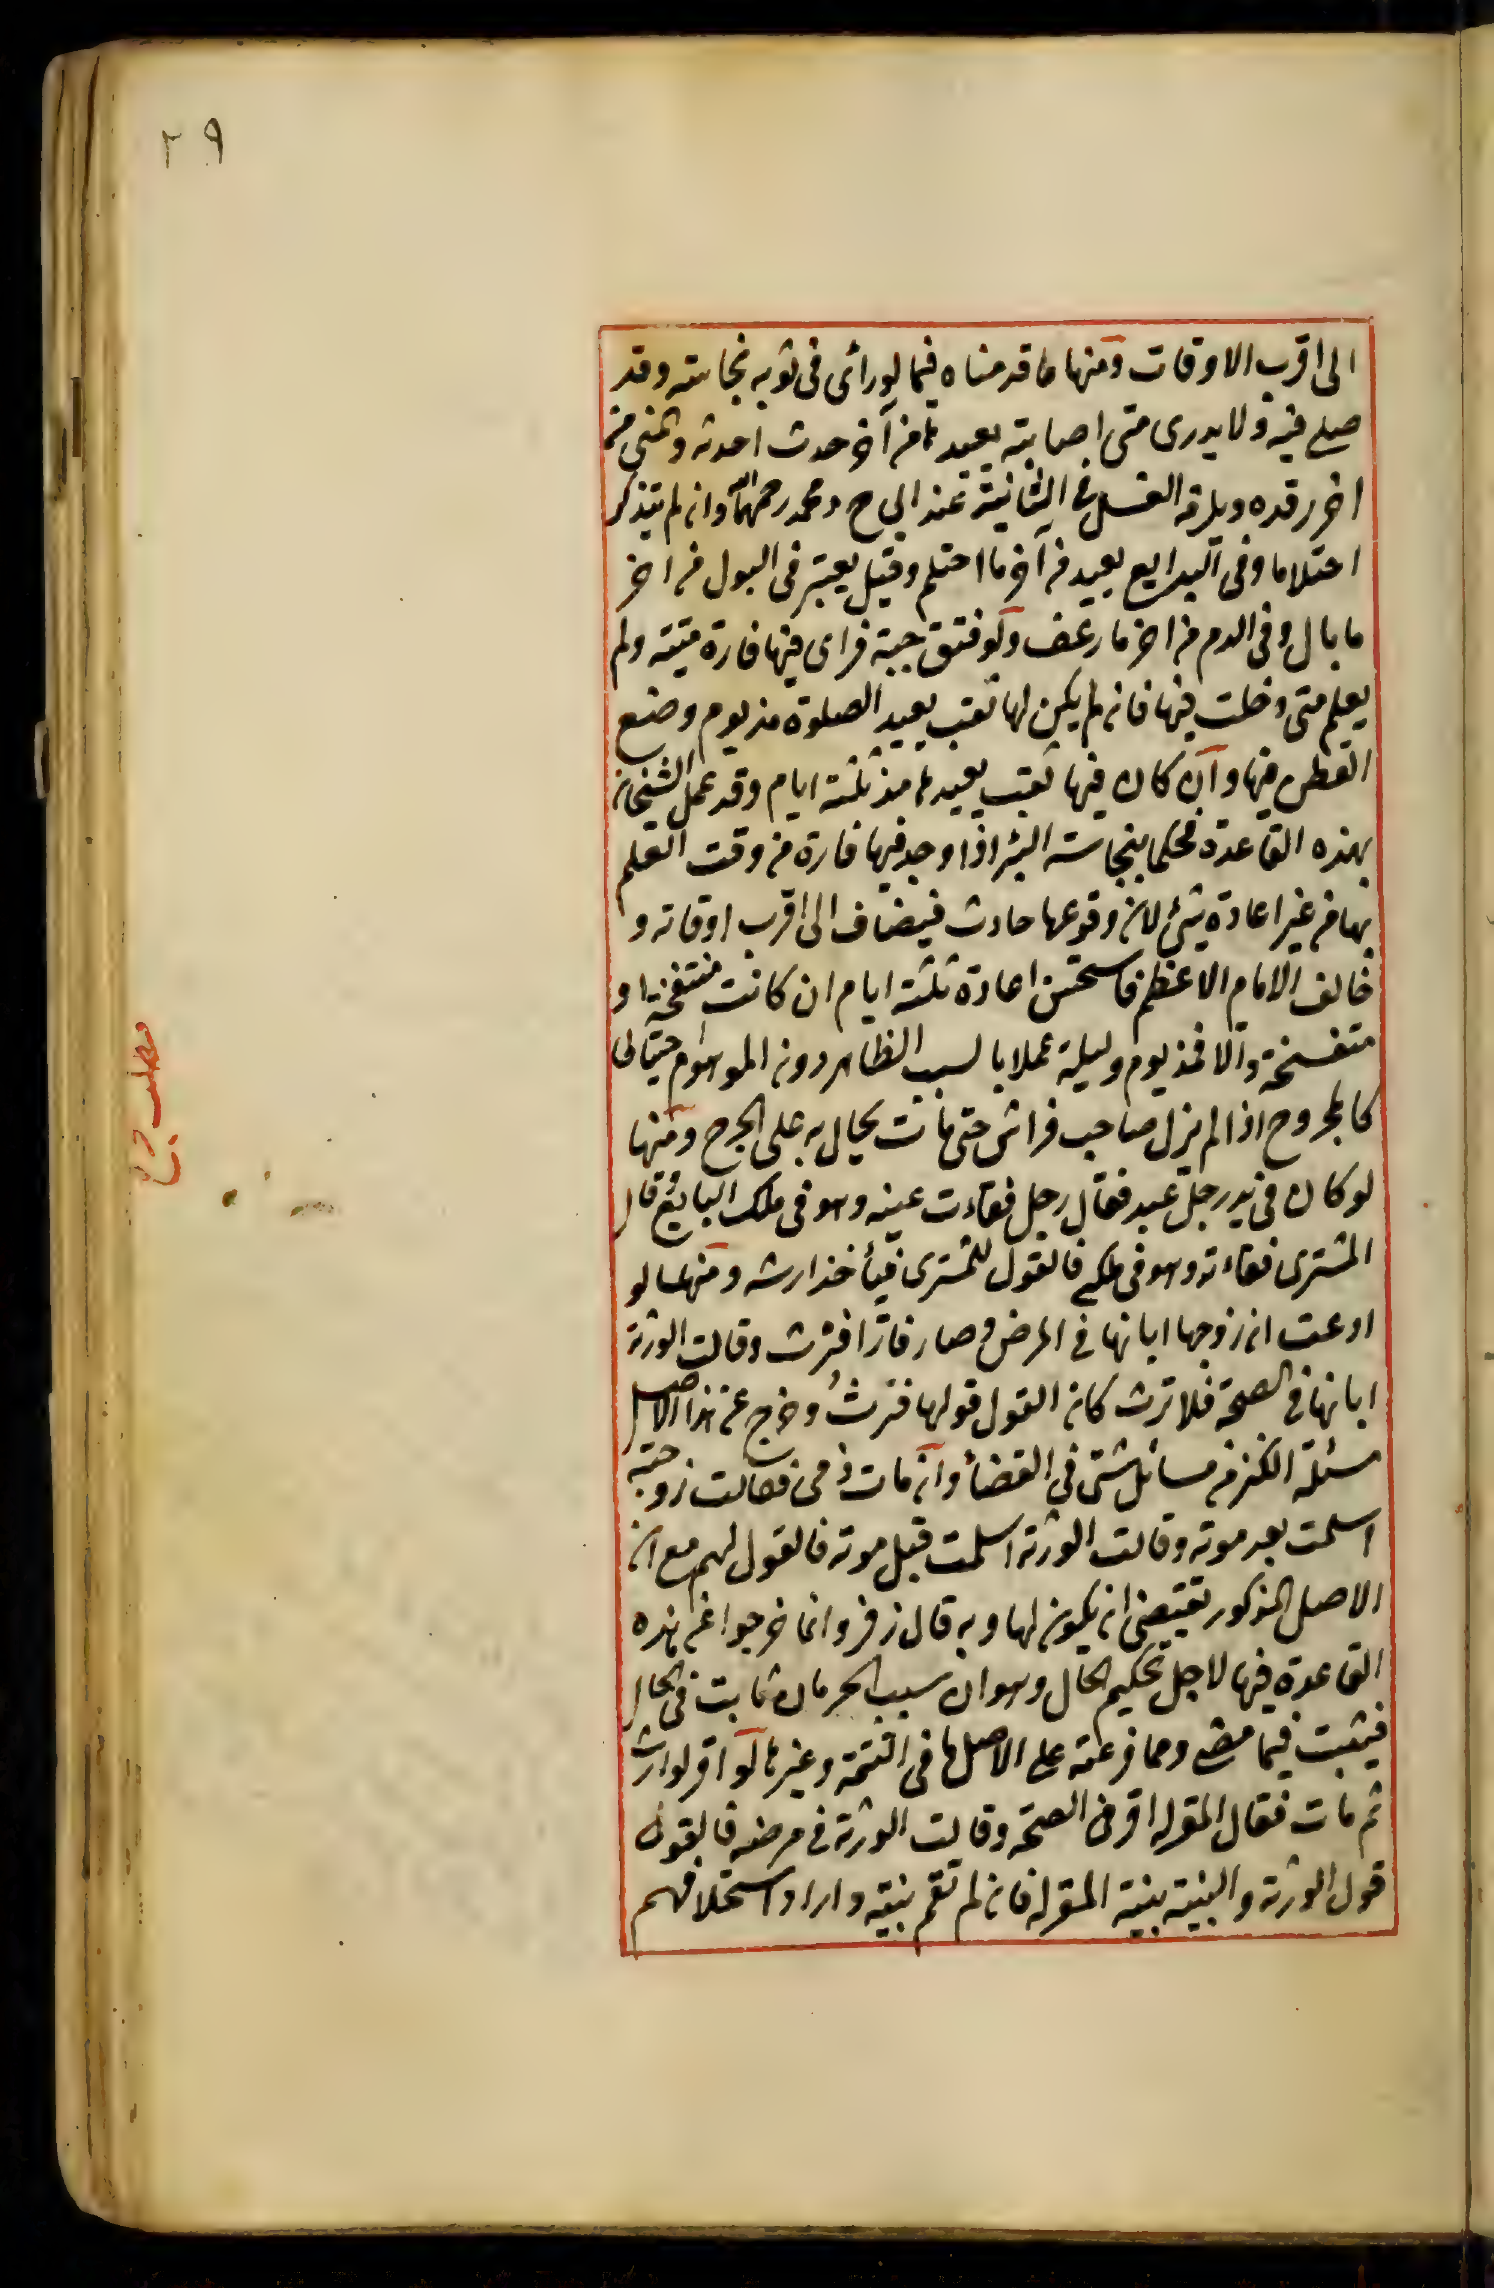 ٢٩
الى اقرب الاوقات ومنها ما قدمناه فيما لو رأى فى ثوبه نجاسته وقد
صلى فيه ولا يدرى متى اصابته يعيدها من آخر حدث احدثه والمنى من
اخر رقده ويلزمه الغسل فى الثانية عند ابى ح ومحمد رحمهما الله وان لم يتذكر
احتلاما وفى البدايع يعيد من آخر ما احتلم وقيل يعتبر فى البول من اخر
ما بال وفى الدم من اخر ما رعف ولو فتق جبة فراى فيها فارة ميتته ولم
يعلم متى دخلت فيها فان لم يكن لها ثقب يعيد الصلوة مذ يوم وضع
القطن فيها وان كان فيها ثقب يعيدها مذ ثلثة ايام وقد عمل الشيخان
بهذه القاعدة فحكما بنجاسته البئر اذا وجد فيها فارة من وقت العلم
بها من غير اعادة شئ لان وقوعها حادث فيضاف الى اقرب اوقاته و
خالف الامام الاعظم فاستحسن اعادة ثلثة ايام ان كانت منتفخة او
متفسخة والا فمذ يوم وليلة عملا بالسبب الظاهر دون الموهوم حتياطا
كالمجروح اذا لم يزل صاحب فراش حتى مات يحال به على الجرح ومنها
لو كان فى يد رجل عبد فقال رجل فقاءت عينه وهو فى ملك البايع وقال
المشترى فقاءته وهو فى ملكى فالقول للمشترى فيأخذ ارشه ومنها لو
ادعت ان زوجها ابانها فى المرض وصار فارا فترث وقالت الورثة
ابانها فى الصحة فلا ترث كان القول قولها فترث وخرج عن هذا الاصل
مسئلة الكنز من مسائل شتى فى القضأ وان مات ذمى فقالت زوجته
اسلمت بعد موته وقالت الورثة اسلمت قبل موته فالقول لهم مع ان
الاصل المذكور يقتضى ان يكون لها وبه قال زفر وانما خرجوا عن هذه
القاعدة فيها لاجل تحكيم الحال وهو ان سبب الحرمان ثابت فى الحال
فيثبت فيما مضى ومما فرعته على الاصل ما فى اليتيمة وغيرها لو اقر لوارث
ثم مات فقال المقر له اقر فى الصحة وقالت الورثة فى مرضه فالقول
قول الورثة والبينة بينة المقر له فان لم تقم بينة واراد استحلافهم
مطلب